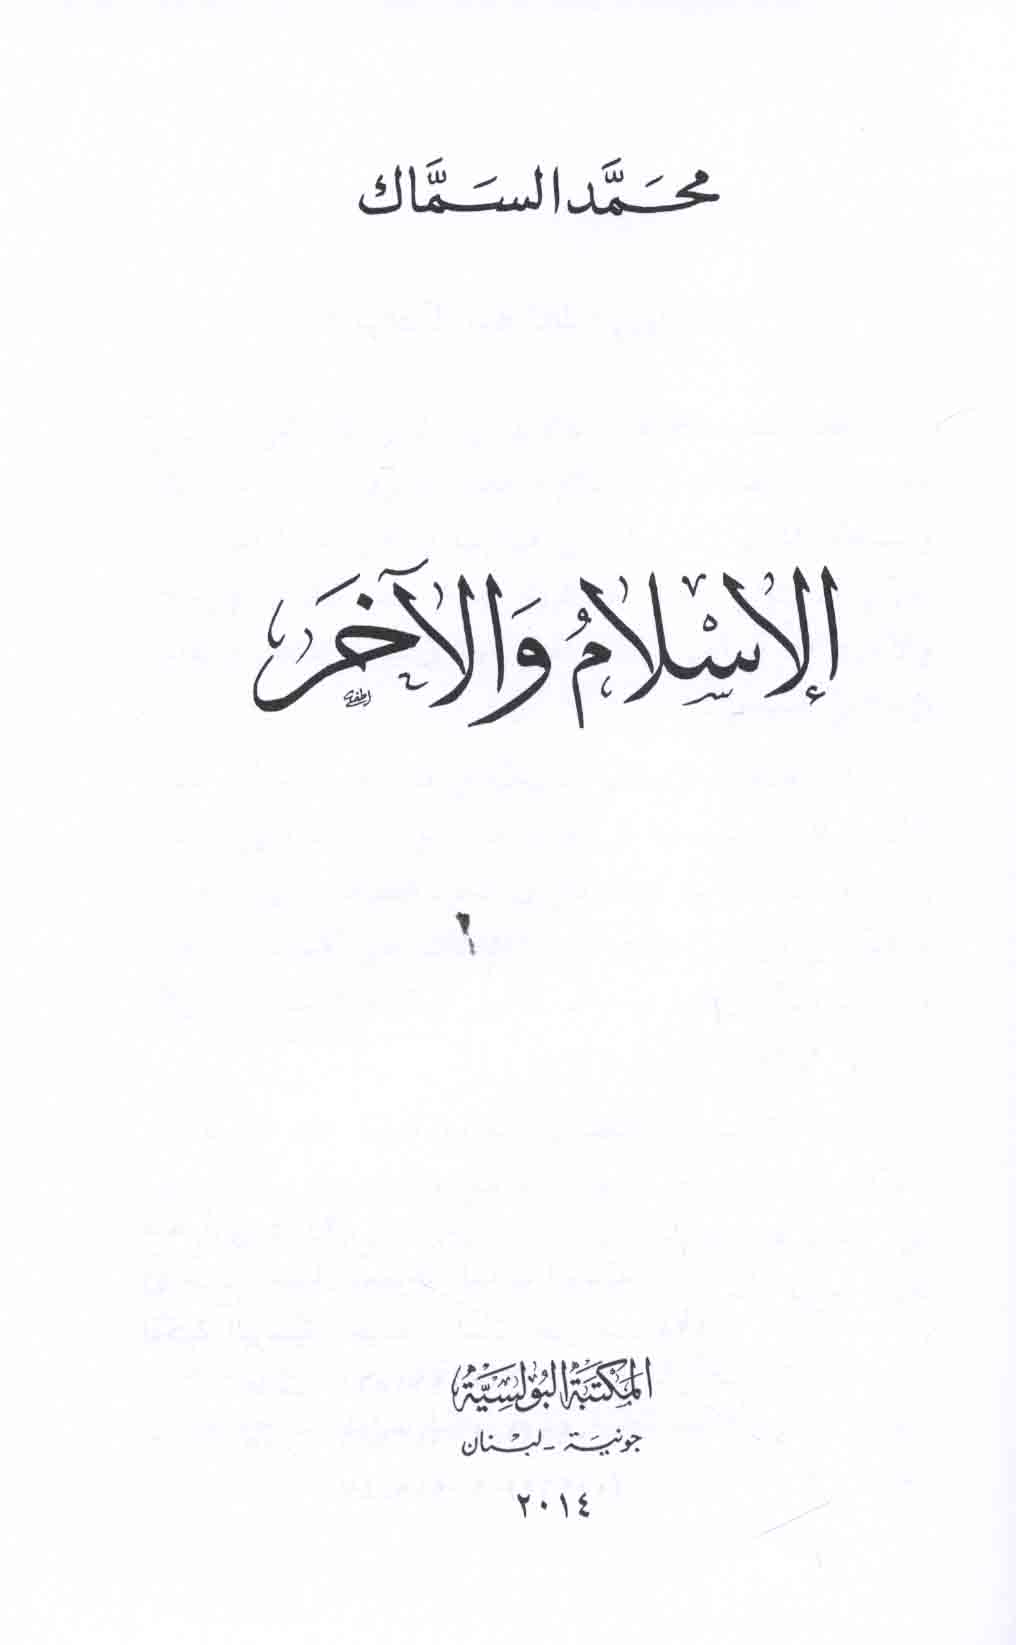 محمَّد السمَّاك
الإسْلامُ وَالآخَر
المكتبَة البُولسِيَّة
جونيَة - لبْنان
٢٠١٤